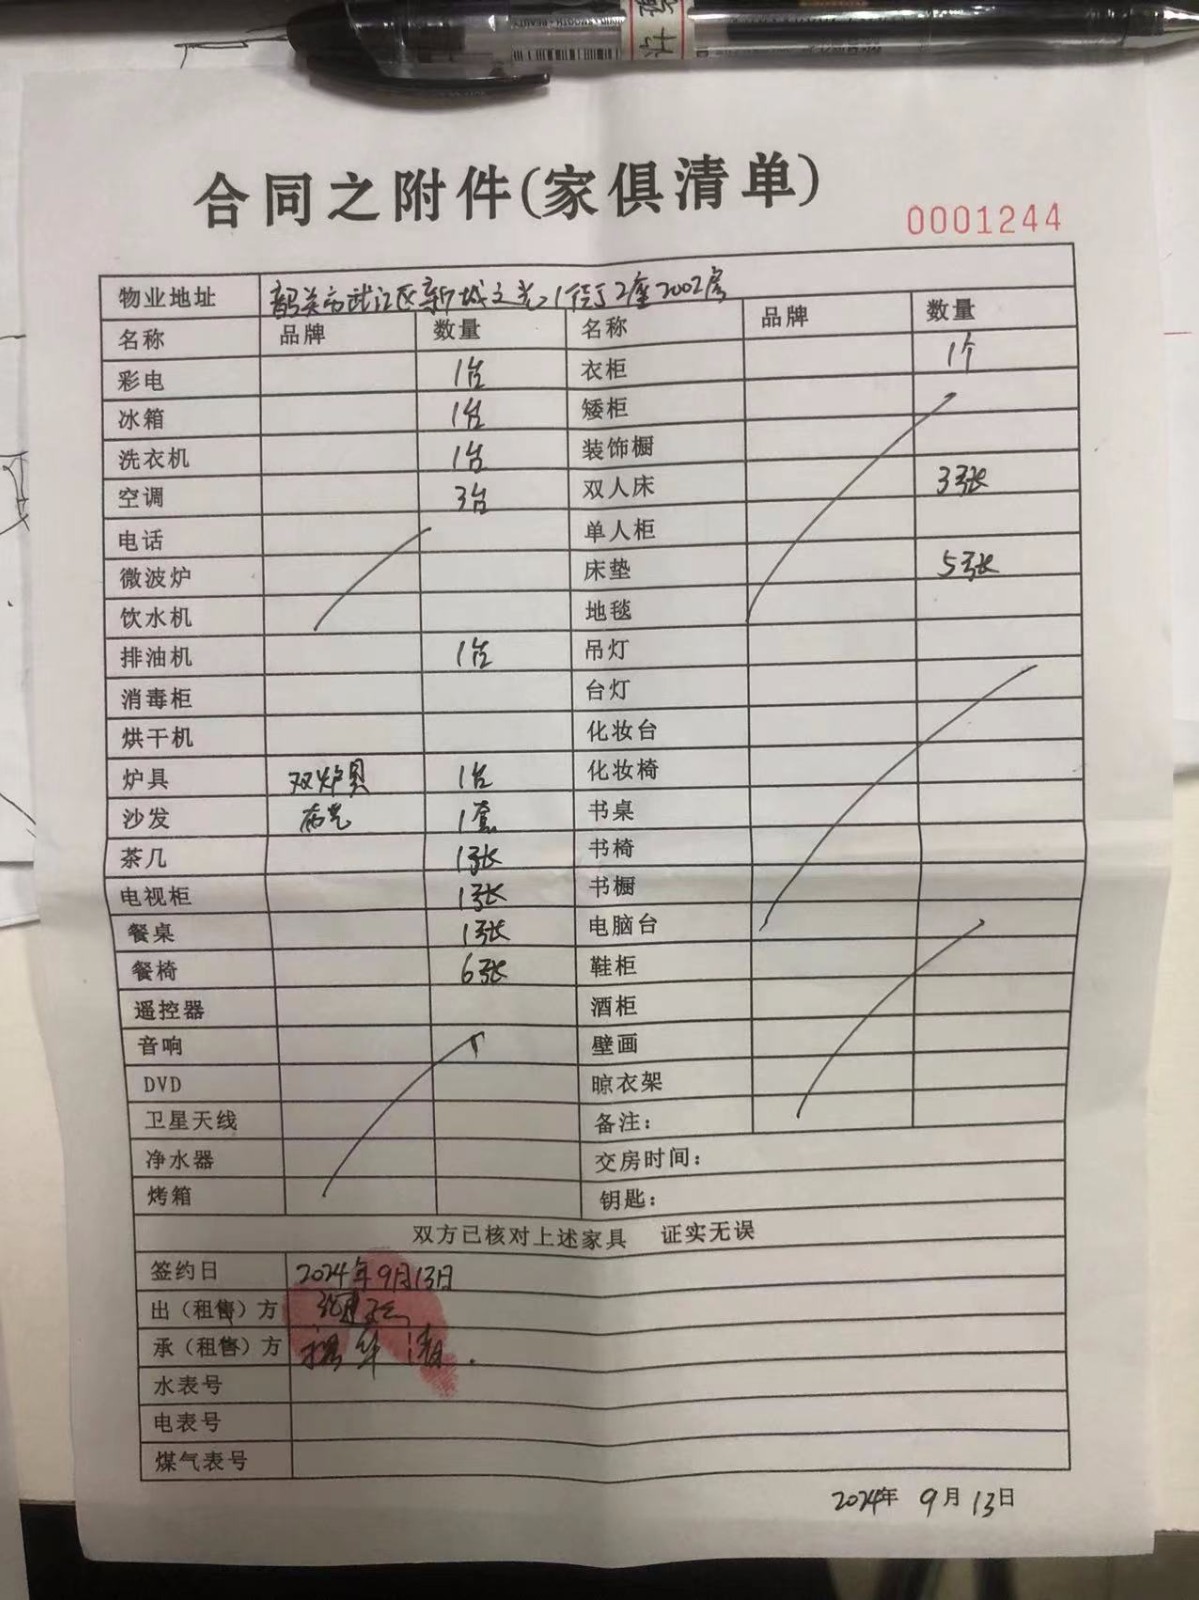 合同之附件(家俱清单)
0001244
物业地址 韶关市武江区新城之光 2座2002房
名称 品牌 数量 名称 品牌 数量
彩电 1台 衣柜 1个
冰箱 1台 矮柜
洗衣机 1台 装饰橱
空调 3台 双人床 3张
电话 单人柜
微波炉 床垫 5张
饮水机 地毯
排油机 1台 吊灯
消毒柜 台灯
烘干机 化妆台
炉具 双炉具 1台 化妆椅
沙发 布艺 1套 书桌
茶几 1张 书椅
电视柜 1张 书橱
餐桌 1张 电脑台
餐椅 6张 鞋柜
遥控器 酒柜
音响 壁画
DVD 晾衣架
卫星天线 备注:
净水器 交房时间:
烤箱 钥匙:
双方已核对上述家具 证实无误
签约日 2024年9月13日
出（租售）方
承（租售）方
水表号
电表号
煤气表号
2024年 9月13日